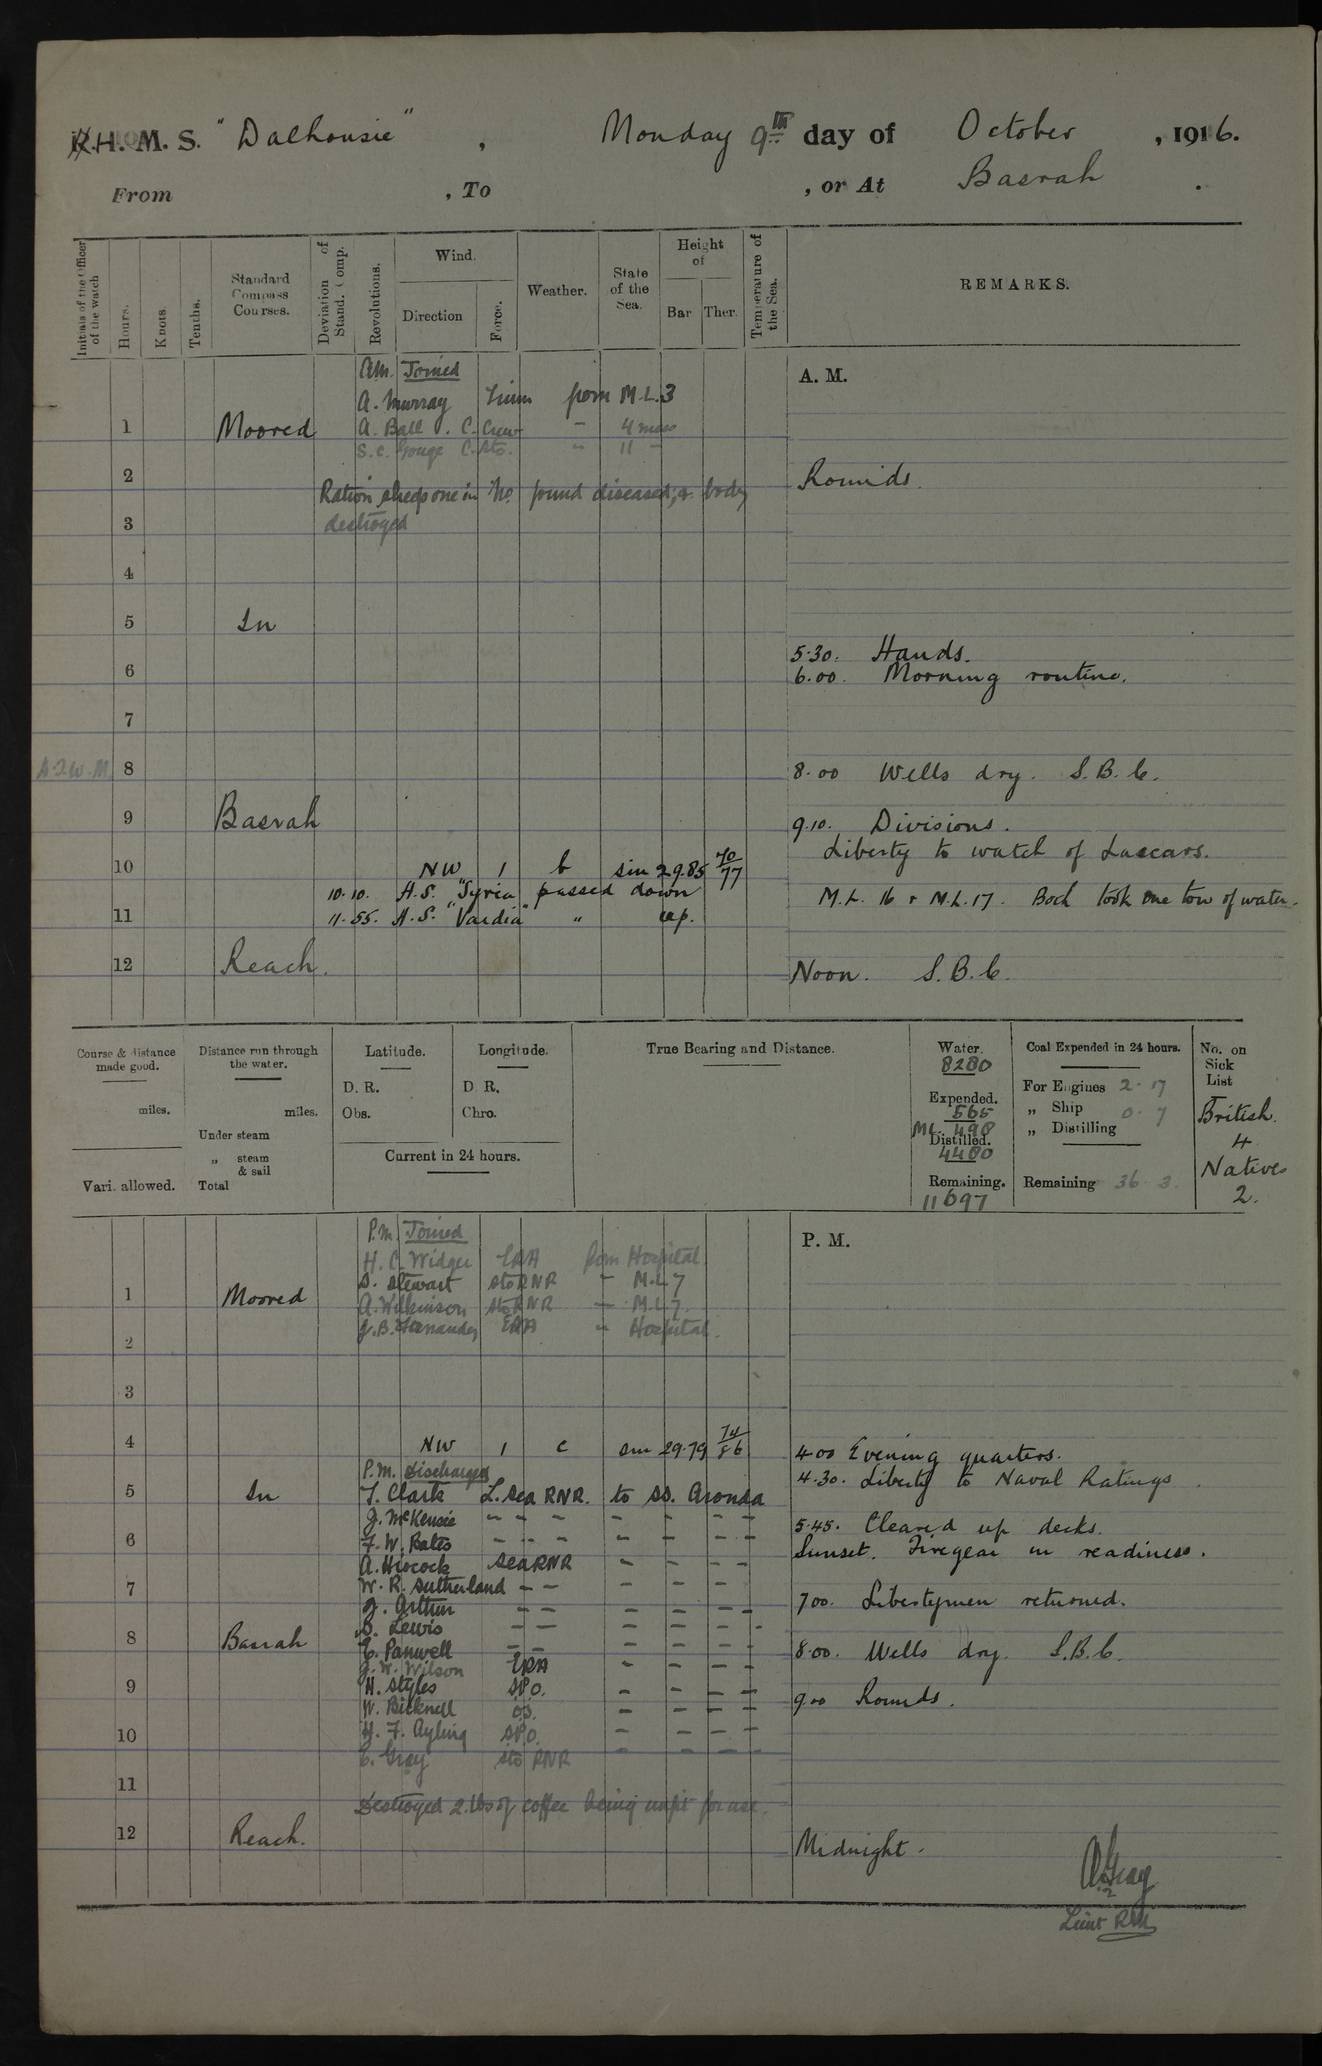 H. M. S. "Dalhousie", Monday 9th day of October, 1916.
From , To , or At Basrah.
Initials of the Officer of the watch
Hours.
Knots.
Tenths.
Standard Compass Courses.
Deviation of Stand. Comp.
Revolutions.
Wind.
Direction
Force.
Weather.
State of the Sea.
Height of
Bar
Ther.
Temperature of the Sea.
REMARKS.
A.M. Joined
A. M.
A. Murray from M.L.3
1 Moored A. Ball . C. Crew - 4 mess
S.C. Gouge C. Sto. " 11 -
2 Rounds.
Ration sheep one in No. found diseased, & body
3 destroyed
4
5 In
5.30. Hands.
6 6.00. Morning routine.
7
8 8.00 Wells dry. S.B.C.
9 Basrah 9.10. Divisions.
Liberty to watch of Lascars.
10 NW 1 b sm 29.85 70/77
10.10. H.S. "Syria" passed down M.L. 16 & M.L. 17. Both took one tow of water.
11 11.55. H.S. "Vardia" " up.
12 Reach. Noon. S.B.C.
Course & distance made good.
miles.
Vari. allowed.
Distance run through the water.
miles.
Under steam
„ steam & sail
Total
Latitude.
D. R.
Obs.
Longitude.
D. R.
Chro.
Current in 24 hours.
True Bearing and Distance.
Water.
8280
Expended.
565
ML. 498
Distilled.
4480
Remaining.
11697
Coal Expended in 24 hours.
For Engines 2.17
„ Ship 0.7
„ Distilling
Remaining 36.3.
No. on Sick List
British.
4
Natives
2.
P.M. Joined
P. M.
H. C. Widger ERA from Hospital
S. Stewart Sto RNR - M.L.7
1 Moored A. Wilkinson Sto RNR - M.L.7.
J.B. Fernandez ERA " Hospital.
2
3
4 NW 1 c sm 29.79 74/86 4.00 Evening quarters.
P.M. Discharged 4.30. Liberty to Naval Ratings.
5 In T. Clark L. Sea RNR. to SS. Aronda
J. McKensie - - - - - - -
5.45. Cleared up decks.
6 F. W. Bates - - - - - - -
A. Hiscock Sea RNR - - - -
Sunset. Firegear in readiness.
W. R. Sutherland - - - - -
7 J. Arthur - - - - - - 7.00. Libertymen returned.
B. Lewis - - - - - -
8 Basrah C. Panwell - - - - - - 8.00. Wells dry. S.B.C.
J. W. Wilson ERA - - - -
9 N. Styles SPO. - - - - 9.00 Rounds.
W. Bicknell O.S. - - - -
10 H. F. Ayling SPO. - - - -
C. Gray Sto RNR - - - -
11
Destroyed 2 lbs of coffee being unfit for use.
12 Reach. Midnight.
A Gray
Lieut RIM